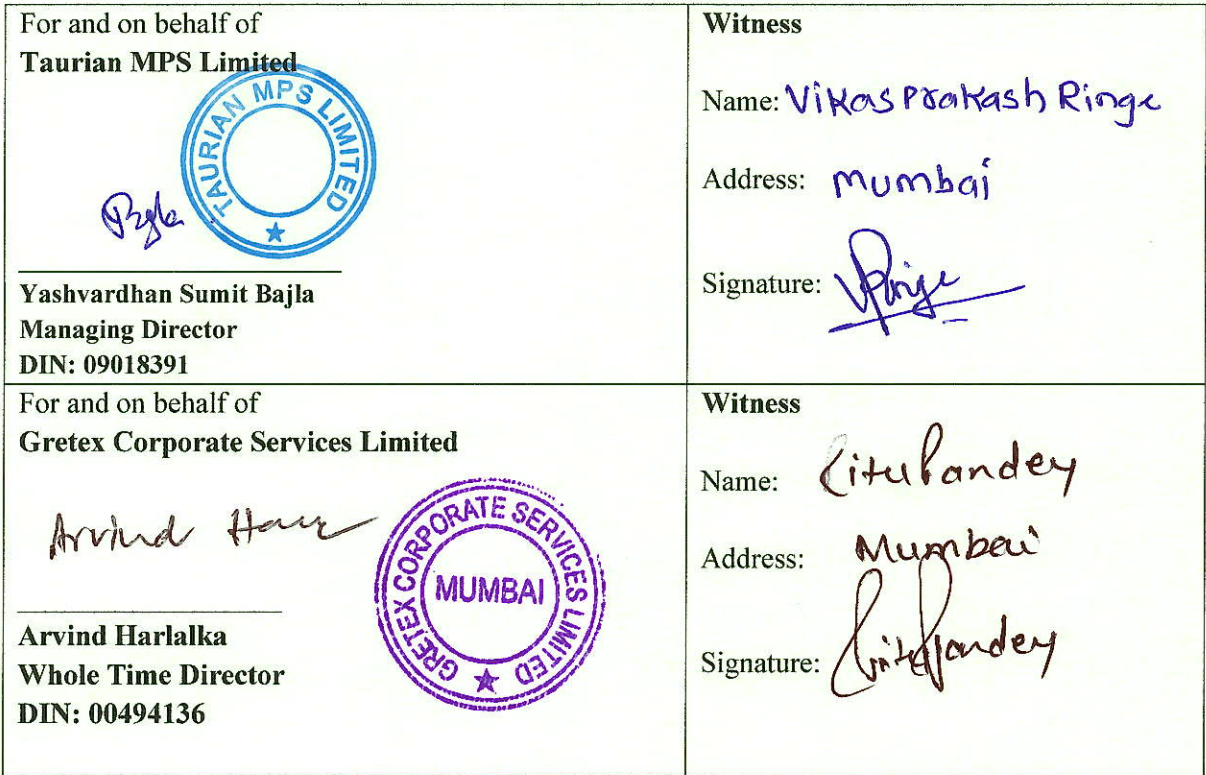 For and on behalf of
Taurian MPS Limited
TAURIAN MPS LIMITED
Yashvardhan Sumit Bajla
Managing Director
DIN: 09018391
Witness
Name: Vikas Prakash Ringe
Address: Mumbai
Signature: VPRinge
For and on behalf of
Gretex Corporate Services Limited
Arvind
GRETEX CORPORATE SERVICES LIMITED
MUMBAI
Arvind Harlalka
Whole Time Director
DIN: 00494136
Witness
Name: Ritu Pandey
Address: Mumbai
Signature: Ritu Pandey